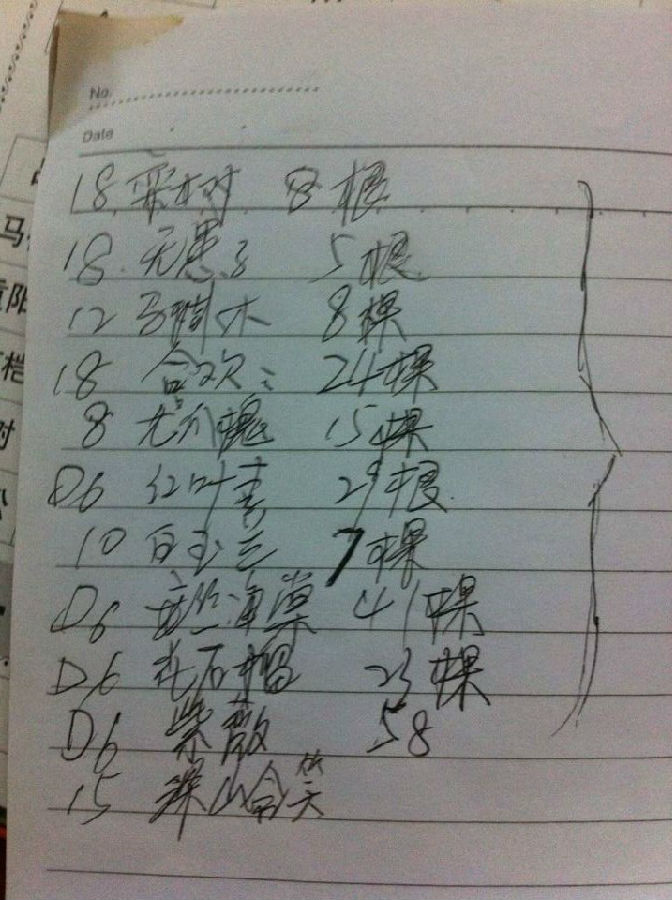 No.
Date
18 栾树 8 棵
18 无患子 5 棵
12 马褂木 8棵
18 合欢 24棵
8 龙爪槐 15棵
D6 红叶李 29棵
10 白玉兰 7棵
D6 垂丝海棠 41棵
D6 花石榴 23棵
D6 紫薇 58
15 深山含笑
马
阳
桤
对